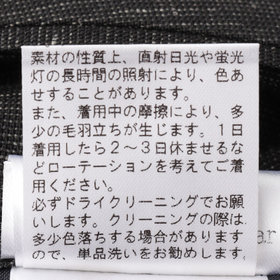 素材の性質上、直射日光や蛍光
灯の長時間の照射により、色あ
せすることがあります。
また、着用中の摩擦により、多
少の毛羽立ちが生じます。1日
着用したら2～3日休ませるな
どローテーションを考えてご着
用ください。
必ずドライクリーニングでお願
いします。クリーニングの際は
多少色落ちする場合があります
ので、単品洗いをお勧めします。
ar